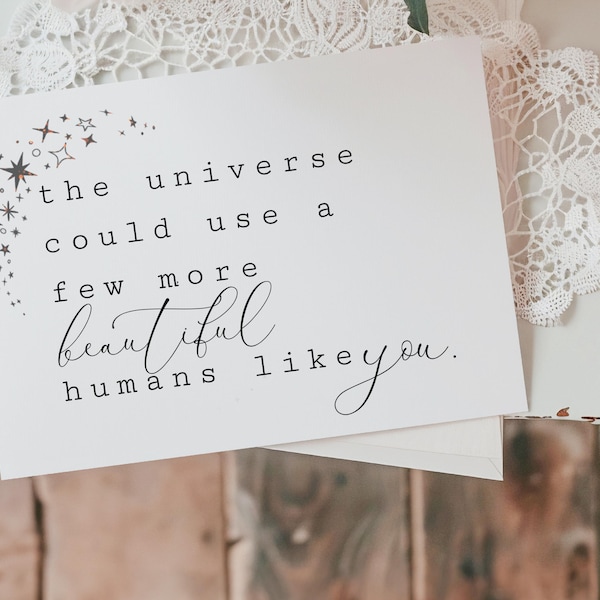 the universe
could use a
few more
beautiful
humans like you.